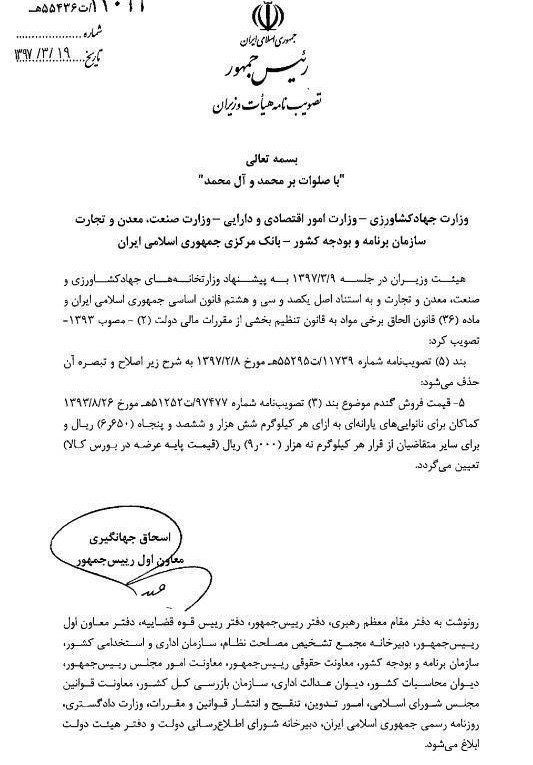 /ت۵۵۴۳۶هـ
شماره
تاریخ ۱۳۹۷/۳/۱۹
جمهوری اسلامی ایران
رئیس جمهور
تصویب نامه هیأت وزیران
بسمه تعالی
"با صلوات بر محمد و آل محمد"
وزارت جهادکشاورزی – وزارت امور اقتصادی و دارایی – وزارت صنعت، معدن و تجارت
سازمان برنامه و بودجه کشور – بانک مرکزی جمهوری اسلامی ایران
هیئت وزیران در جلسه ۱۳۹۷/۳/۹ به پیشنهاد وزارتخانه‌های جهادکشاورزی و
صنعت، معدن و تجارت و به استناد اصل یکصد و سی و هشتم قانون اساسی جمهوری اسلامی ایران و
ماده (۳۶) قانون الحاق برخی مواد به قانون تنظیم بخشی از مقررات مالی دولت (۲) - مصوب ۱۳۹۳-
تصویب کرد:
بند (۵) تصویب‌نامه شماره ۱۱۷۳۹/ت۵۵۲۹۵هـ مورخ ۱۳۹۷/۲/۸ به شرح زیر اصلاح و تبصره آن
حذف می‌شود:
۵- قیمت فروش گندم موضوع بند (۳) تصویب‌نامه شماره ۹۷۴۷۷/ت۵۱۲۵۲هـ مورخ ۱۳۹۳/۸/۲۶
کماکان برای نانوایی‌های یارانه‌ای به ازای هر کیلوگرم شش هزار و ششصد و پنجاه (۶٫۶۵۰) ریال و
برای سایر متقاضیان از قرار هر کیلوگرم نه هزار (۹٫۰۰۰) ریال (قیمت پایه عرضه در بورس کالا)
تعیین می‌گردد.
اسحاق جهانگیری
معاون اول رییس‌جمهور
رونوشت به دفتر مقام معظم رهبری، دفتر رییس‌جمهور، دفتر رییس قوه قضاییه، دفتر معاون اول
رییس‌جمهور، دبیرخانه مجمع تشخیص مصلحت نظام، سازمان اداری و استخدامی کشور،
سازمان برنامه و بودجه کشور، معاونت حقوقی رییس‌جمهور، معاونت امور مجلس رییس‌جمهور،
دیوان محاسبات کشور، دیوان عدالت اداری، سازمان بازرسی کل کشور، معاونت قوانین
مجلس شورای اسلامی، امور تدوین، تنقیح و انتشار قوانین و مقررات، وزارت دادگستری،
روزنامه رسمی جمهوری اسلامی ایران، دبیرخانه شورای اطلاع‌رسانی دولت و دفتر هیئت دولت
ابلاغ می‌شود.